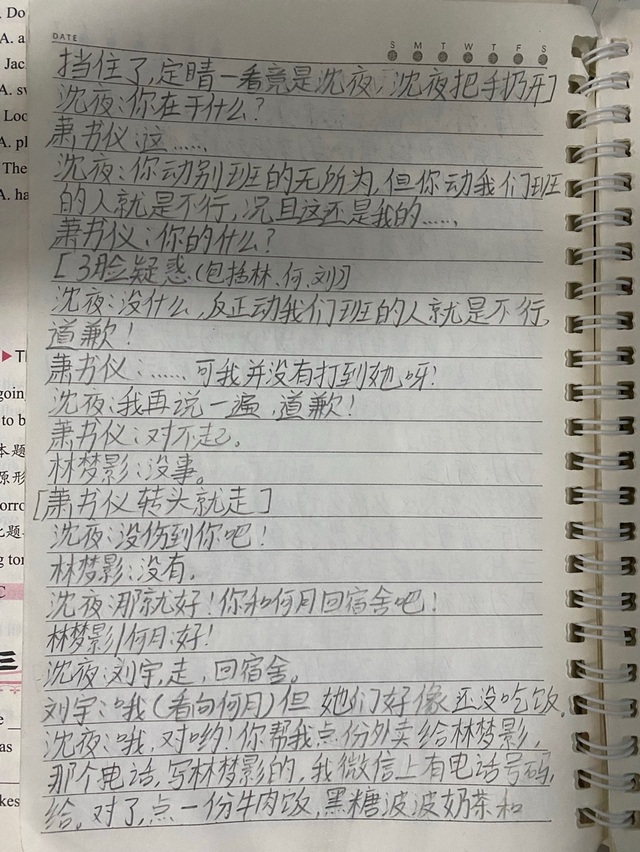 DATE
S M T W T F S
挡住了,定晴一看竟是沈夜,沈夜把手扔开]
沈夜:你在干什么?
萧书仪:这……
沈夜:你动别班的无所为,但你动我们班
的人就是不行,况且这还是我的……,
萧书仪:你的什么?
[3脸疑惑(包括林、何、刘)]
沈夜:没什么,反正动我们班的人就是不行,
道歉!
萧书仪:……可我并没有打到她呀!
沈夜:我再说一遍,道歉!
萧书仪:对不起。
林梦影:没事。
[萧书仪转头就走]
沈夜:没伤到你吧!
林梦影:没有。
沈夜:那就好!你和何月回宿舍吧!
林梦影/何月:好!
沈夜:刘宇,走,回宿舍。
刘宇:哦(看向何月)但她们好像还没吃饭。
沈夜:哦,对哟!你帮我点份外卖给林梦影,
那个电话,写林梦影的,我微信上有电话号码,
给。对了,点一份牛肉饭,黑糖波波奶茶和
Do
A. a
Jac
A. sv
Loo
A. pl
The
A. ha
goin
to b
本题
原形
orro
比题
ng tor
C
三
e
as
kes